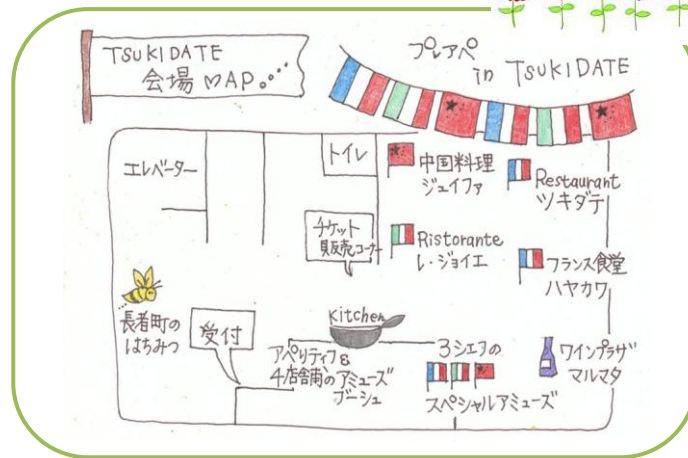 TSUKIDATE
会場 MAP
プレアペ
in TSUKIDATE
エレベーター
トイレ
中国料理
ジェイファ
Restaurant
ツキダテ
チケット
販売コーナー
Ristorante
レ・ジョイエ
フランス食堂
ハヤカワ
長者町の
はちみつ
受付
Kitchen
アペリティフ&
4店舗のアミューズ
ブーシュ
3シェフの
スペシャルアミューズ
ワインプラザ
マルマタ